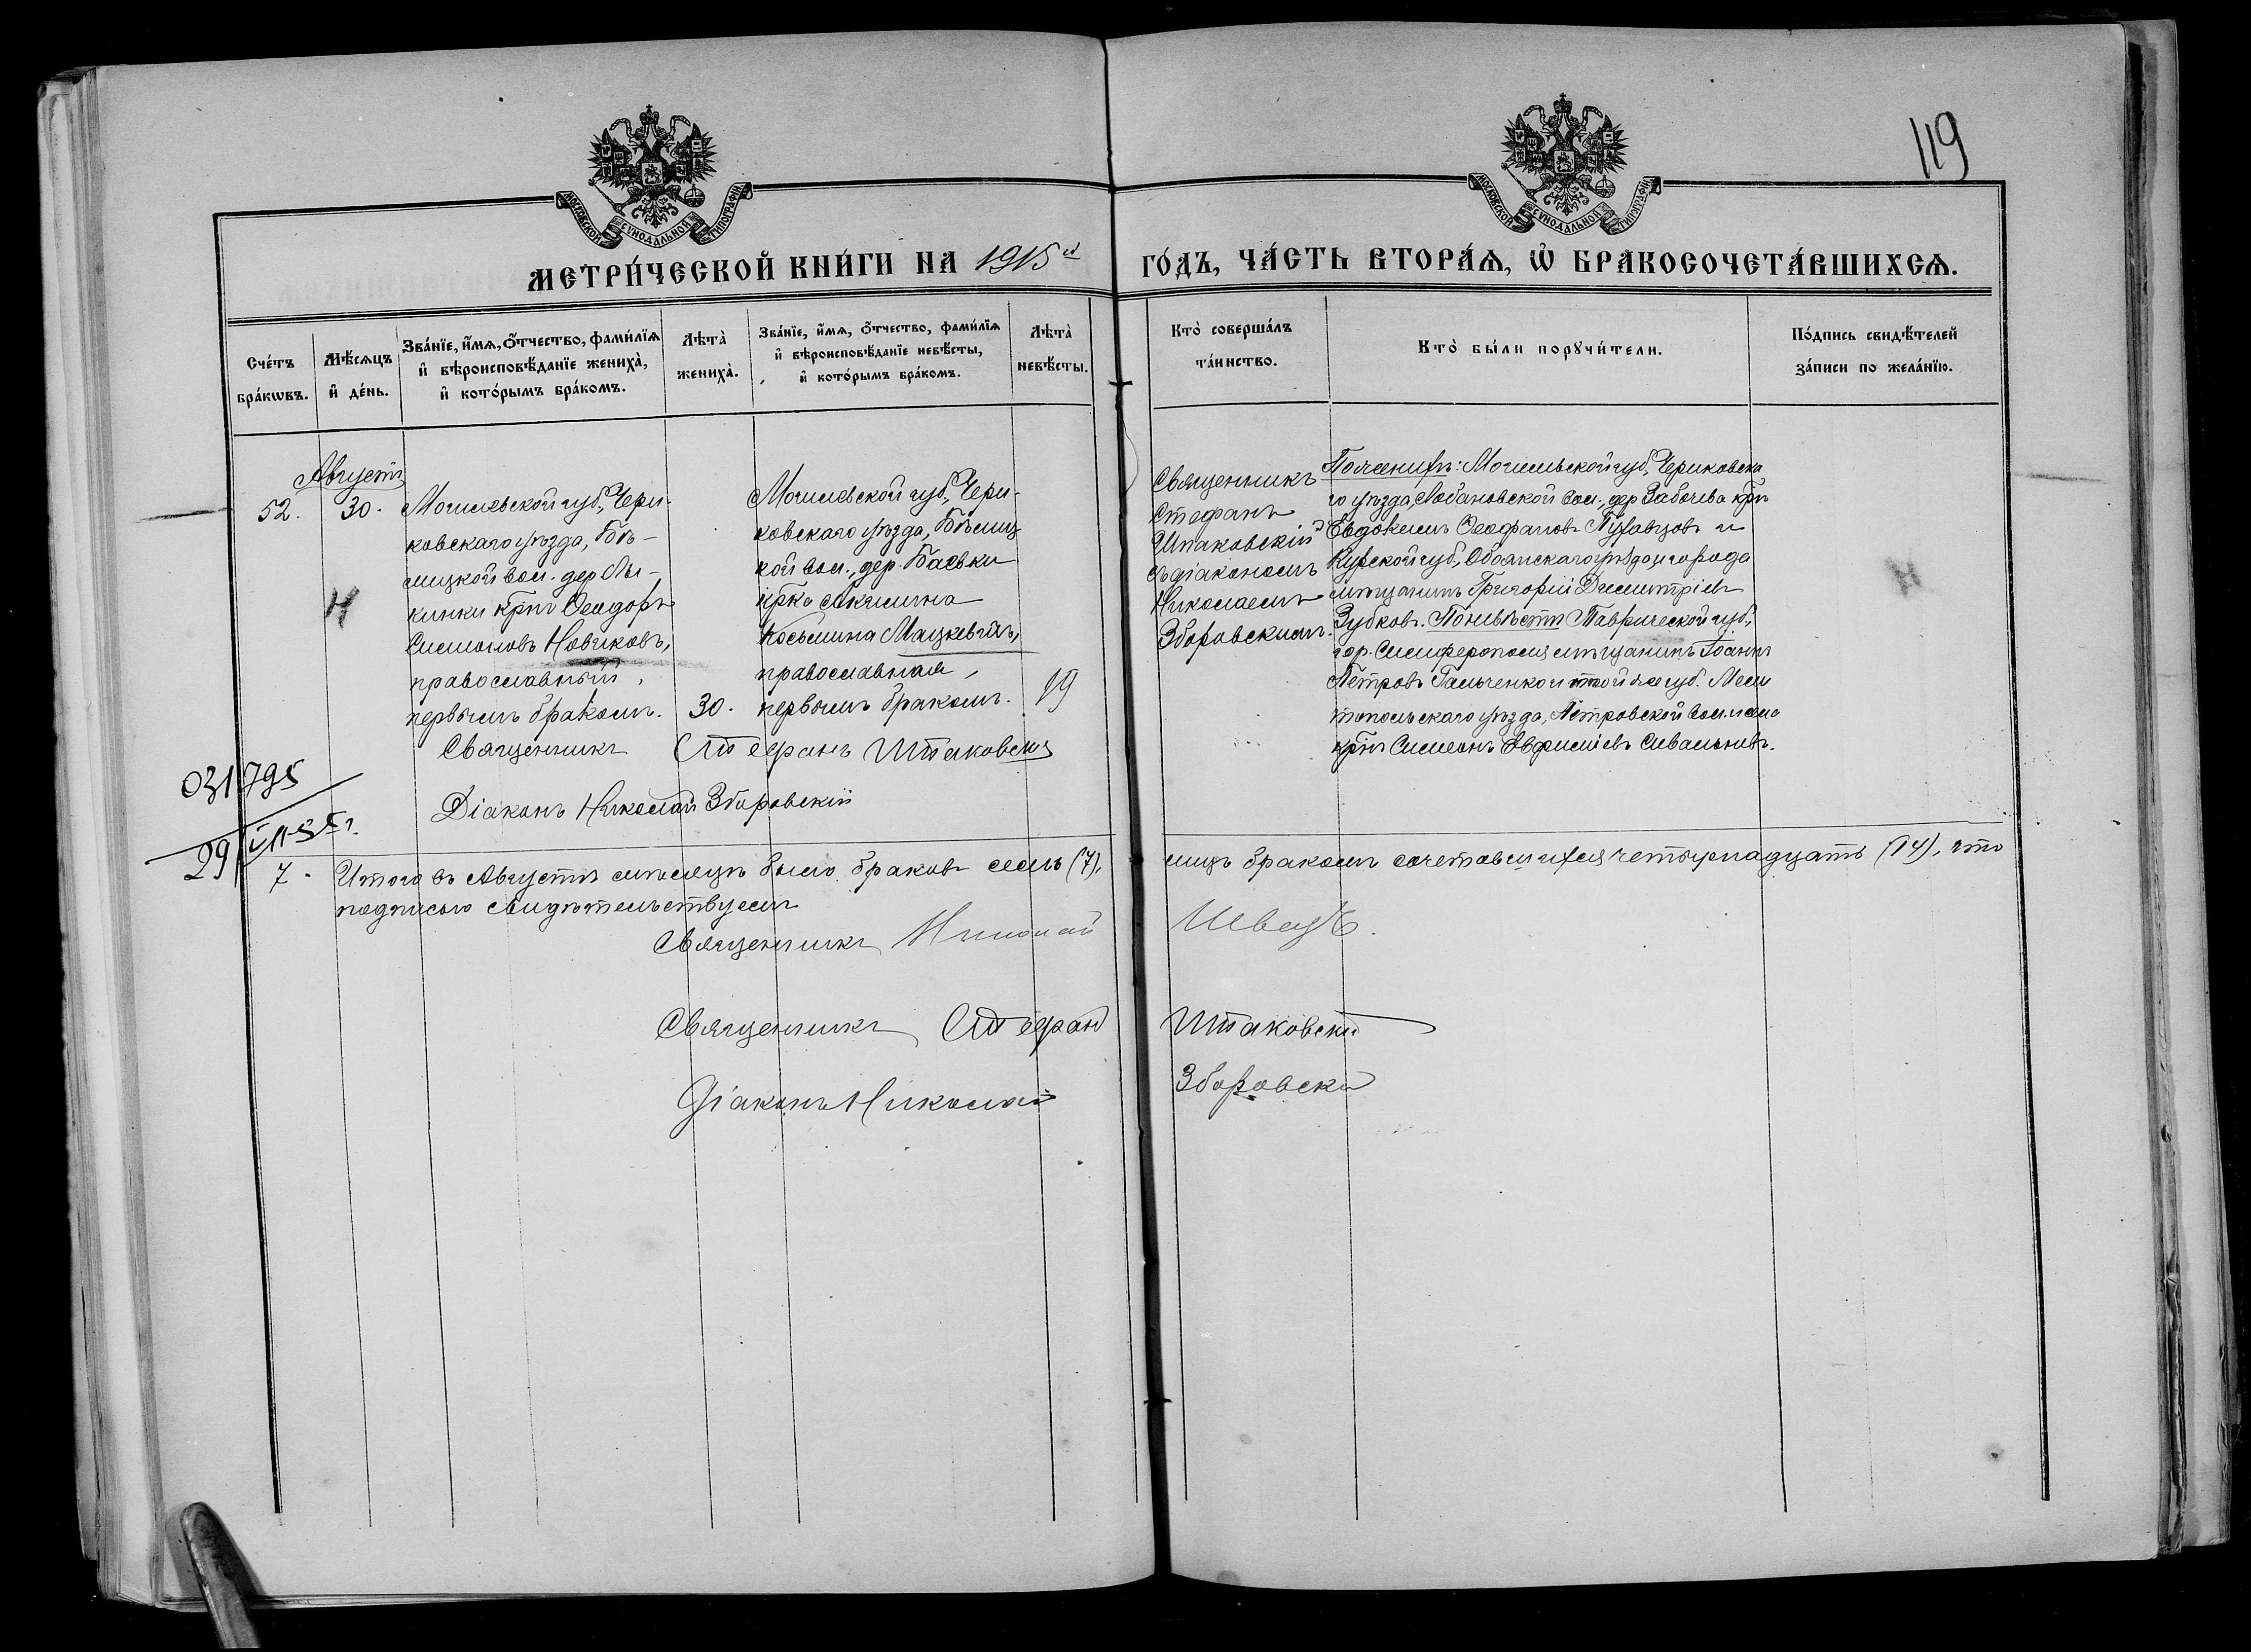 119
МОСКОВСКОЙ СУНОДАЛЬНОЙ ТИПОГРАФІИ
МОСКОВСКОЙ СУНОДАЛЬНОЙ ТИПОГРАФІИ
МЕТРИ́ЧЕСКОЙ КНИ́ГИ НА 1915й ГО́ДЪ, ЧА́СТЬ ВТОРА́Ѧ, Ѽ БРАКОСОЧЕТА́ВШИХСѦ.
Сче́тъ
бра́кѡвъ.
Мѣ́сѧцъ
и҆ де́нь.
Зва́нїе, и҆́мѧ, о҆́тчество, фами́лїѧ
и҆ вѣроисповѣ́данїе жениха̀,
и҆ кото́рымъ бра́комъ.
Лѣта̀
жениха̀.
Зва́нїе, и҆́мѧ, о҆́тчество, фами́лїѧ
и҆ вѣроисповѣ́данїе невѣ́сты,
и҆ кото́рымъ бра́комъ.
Лѣта̀
невѣ́сты.
Кто̀ соверша́лъ
та́инство.
Кто̀ бы́ли порꙋчи́тели.
По́дпись свидѣ́телей
за́писи по жела́нїю.
Августъ
52.
30.
Н
Могилевской губ., Чери-
ковскаго уѣзда, Бѣ-
лицкой вол. дер. Лы-
кинки крн Ѳеодоръ
Симоновъ Новиковъ,
православный,
первымъ бракомъ.
30.
Могилевской губ., Чери-
ковскаго уѣзда, Бѣлиц
кой вол., дер. Баевки
крка Акилина
Косьмина Мацкевичъ,
православная,
первымъ бракомъ.
19
Священникъ
Стефанъ
Шпаковскій
съ діакономъ
Николаемъ
Зборовскимъ.
По женихѣ: Могилевской губ., Чериковска
го уѣзда, Лобановской вол., дер. Забочева крн
Евдокимъ Ѳеофановъ и
Курской губ., Обоянскаго уѣзда и города
мѣщанинъ Григорій Димитріевъ
Зубковъ. По невѣстѣ Таврической губ.,
гор. Симферополя мѣщанинъ Іоаннъ
Петровъ Гальченко и той же губ. Мели
топольскаго уѣзда, Петровской вол. и села
крн Симеонъ Евфиміевъ Сивальневъ.
Н
Священникъ Стефанъ Шпаковскій
Діаконъ Николай Зборовскій
031795
29/VII-55г.
7. Итого въ Августѣ мѣсяцѣ было браковъ семь (7), лицъ бракомъ сочетавшихся четырнадцать (14), что
подписью свидѣтельствуемъ
Священникъ Николай Швецъ.
Священникъ Стефанъ Шпаковскій
Діаконъ Николай Зборовскій